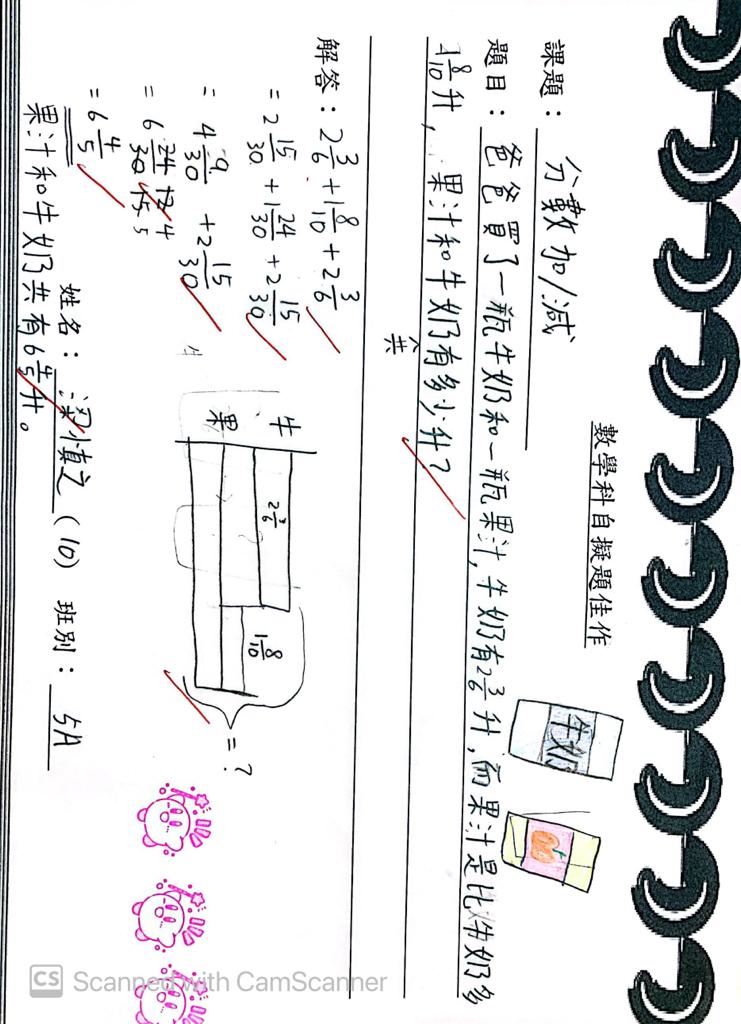 數學科自擬題佳作
課題： 分數加/減
題目： 爸爸買了一瓶牛奶和一瓶果汁, 牛奶有2 3/6 升, 而果汁是比牛奶多
1 8/10 升, 果汁和牛奶共有多少升?
牛奶
解答： 2 3/6 + 1 8/10 + 2 3/6
= 2 15/30 + 1 24/30 + 2 15/30
= 4 9/30 + 2 15/30
= 6 24/30 12/15 4/5
= 6 4/5
果汁和牛奶共有6 4/5 升。
牛 2 3/6
果 1 8/10
= ?
姓名： 梁慎之 (10) 班別： 5A
CS Scanned with CamScanner